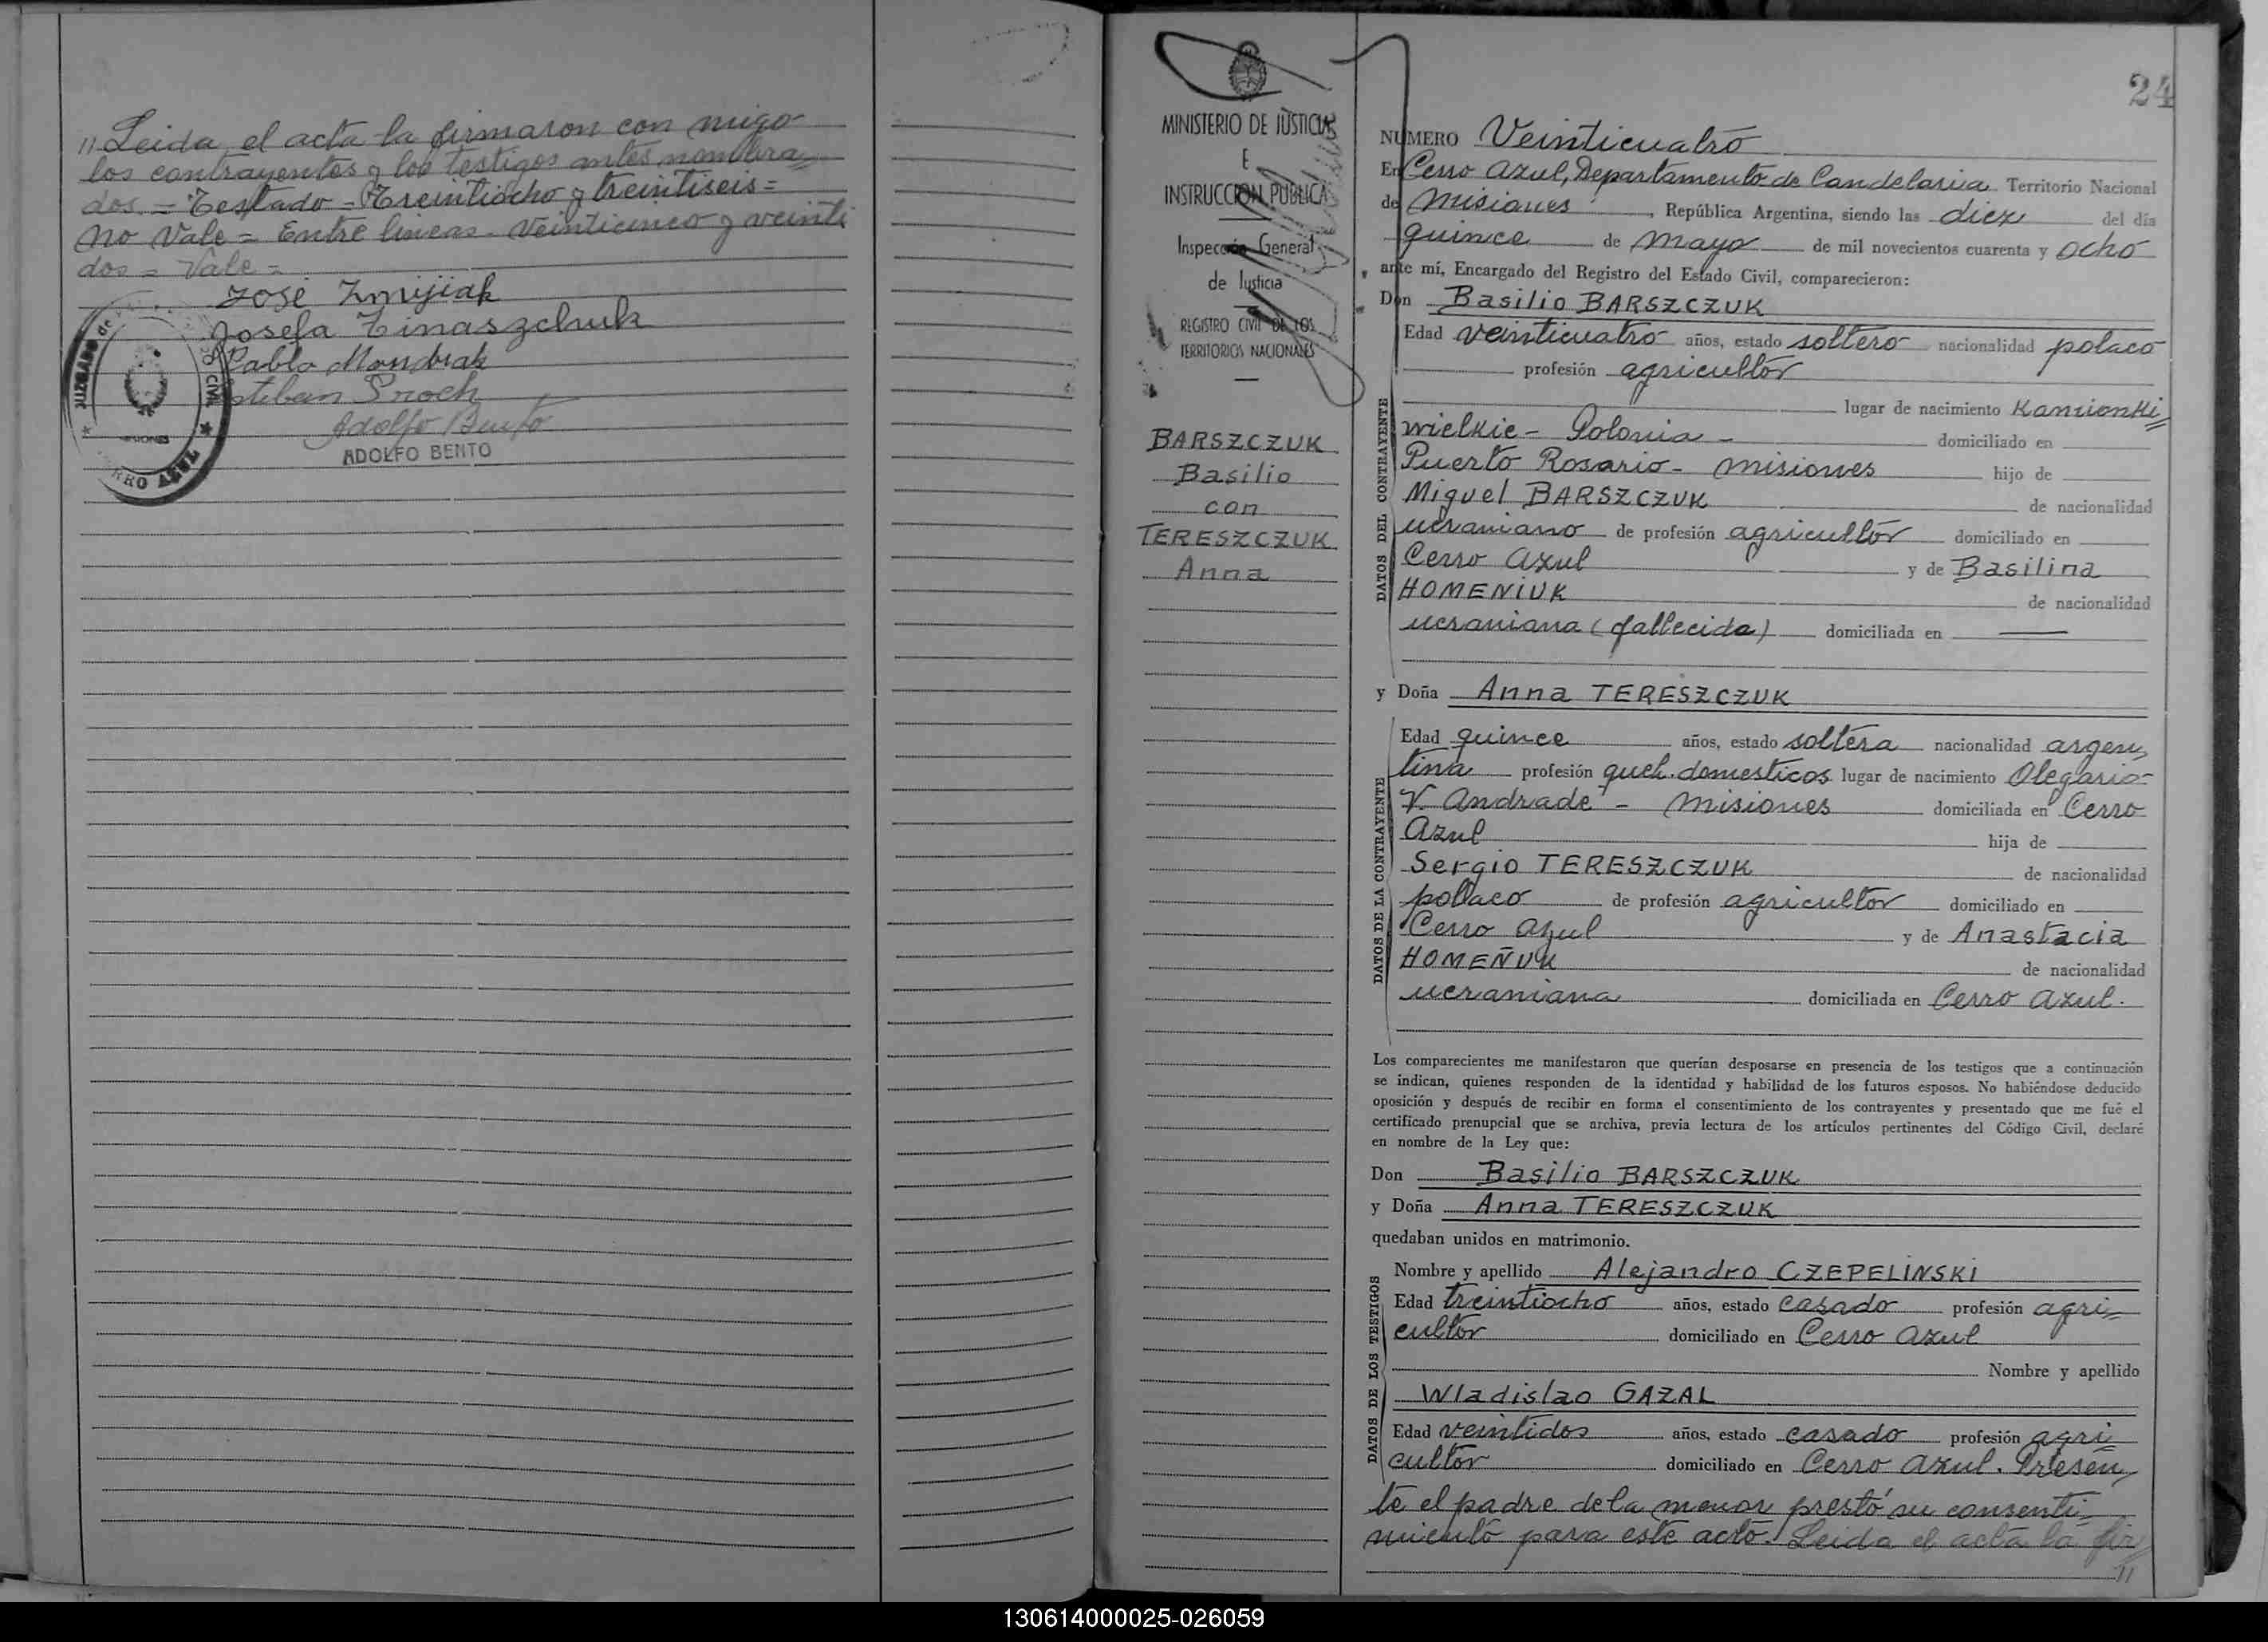 " Leida el acta la firmaron con migo
los contrayentes y los testigos antes nombra=
dos. = Testado - Treintiocho y treintiseis =
No Vale = Entre lineas - Veinticinco y veinti
dos = Vale =
José Zmijiak
Josefa Tinaszchuk
Pablo Mondrak
Esteban Snoch
Adolfo Bento
ADOLFO BENTO
JUZGADO de
CIVIL
MISIONES
CERRO AZUL
24
MINISTERIO DE JUSTICIA
E
INSTRUCCION PUBLICA
Inspección General
de Justicia
REGISTRO CIVIL DE LOS
TERRITORIOS NACIONALES
BARSZCZUK
Basilio
con
TERESZCZUK
Anna
NUMERO Veinticuatro
En Cerro Azul, Departamento de Candelaria Territorio Nacional
de Misiones, República Argentina, siendo las diez del día
quince de Mayo de mil novecientos cuarenta y ocho
ante mí, Encargado del Registro del Estado Civil, comparecieron:
Don Basilio BARSZCZUK
DATOS DEL CONTRAYENTE
Edad veinticuatro años, estado soltero nacionalidad polaco
profesión agricultor
lugar de nacimiento Kamionki=
wielkie - Polonia - domiciliado en
Puerto Rosario - Misiones hijo de
Miguel BARSZCZUK de nacionalidad
ucraniano de profesión agricultor domiciliado en
Cerro Azul y de Basilina
HOMENIUK de nacionalidad
ucraniana (fallecida) domiciliada en
y Doña Anna TERESZCZUK
DATOS DE LA CONTRAYENTE
Edad quince años, estado soltera nacionalidad argen=
tina profesión queh. domesticos lugar de nacimiento Olegario
V. Andrade - Misiones domiciliada en Cerro
Azul hija de
Sergio TERESZCZUK de nacionalidad
polaco de profesión agricultor domiciliado en
Cerro Azul y de Anastacia
HOMEÑUK de nacionalidad
ucraniana domiciliada en Cerro Azul.
Los comparecientes me manifestaron que querían desposarse en presencia de los testigos que a continuación
se indican, quienes responden de la identidad y habilidad de los futuros esposos. No habiéndose deducido
oposición y después de recibir en forma el consentimiento de los contrayentes y presentado que me fué el
certificado prenupcial que se archiva, previa lectura de los artículos pertinentes del Código Civil, declaré
en nombre de la Ley que:
Don Basilio BARSZCZUK
y Doña Anna TERESZCZUK
quedaban unidos en matrimonio.
DATOS DE LOS TESTIGOS
Nombre y apellido Alejandro CZEPELINSKI
Edad treintiocho años, estado casado profesión agri=
cultor domiciliado en Cerro Azul
Nombre y apellido
Wladislao GAZAL
Edad veintidos años, estado casado profesión agri=
cultor domiciliado en Cerro Azul. Presen=
te el padre de la menor prestó su consenti=
miento para este acto. Leida el acta la fir=
"
130614000025-026059